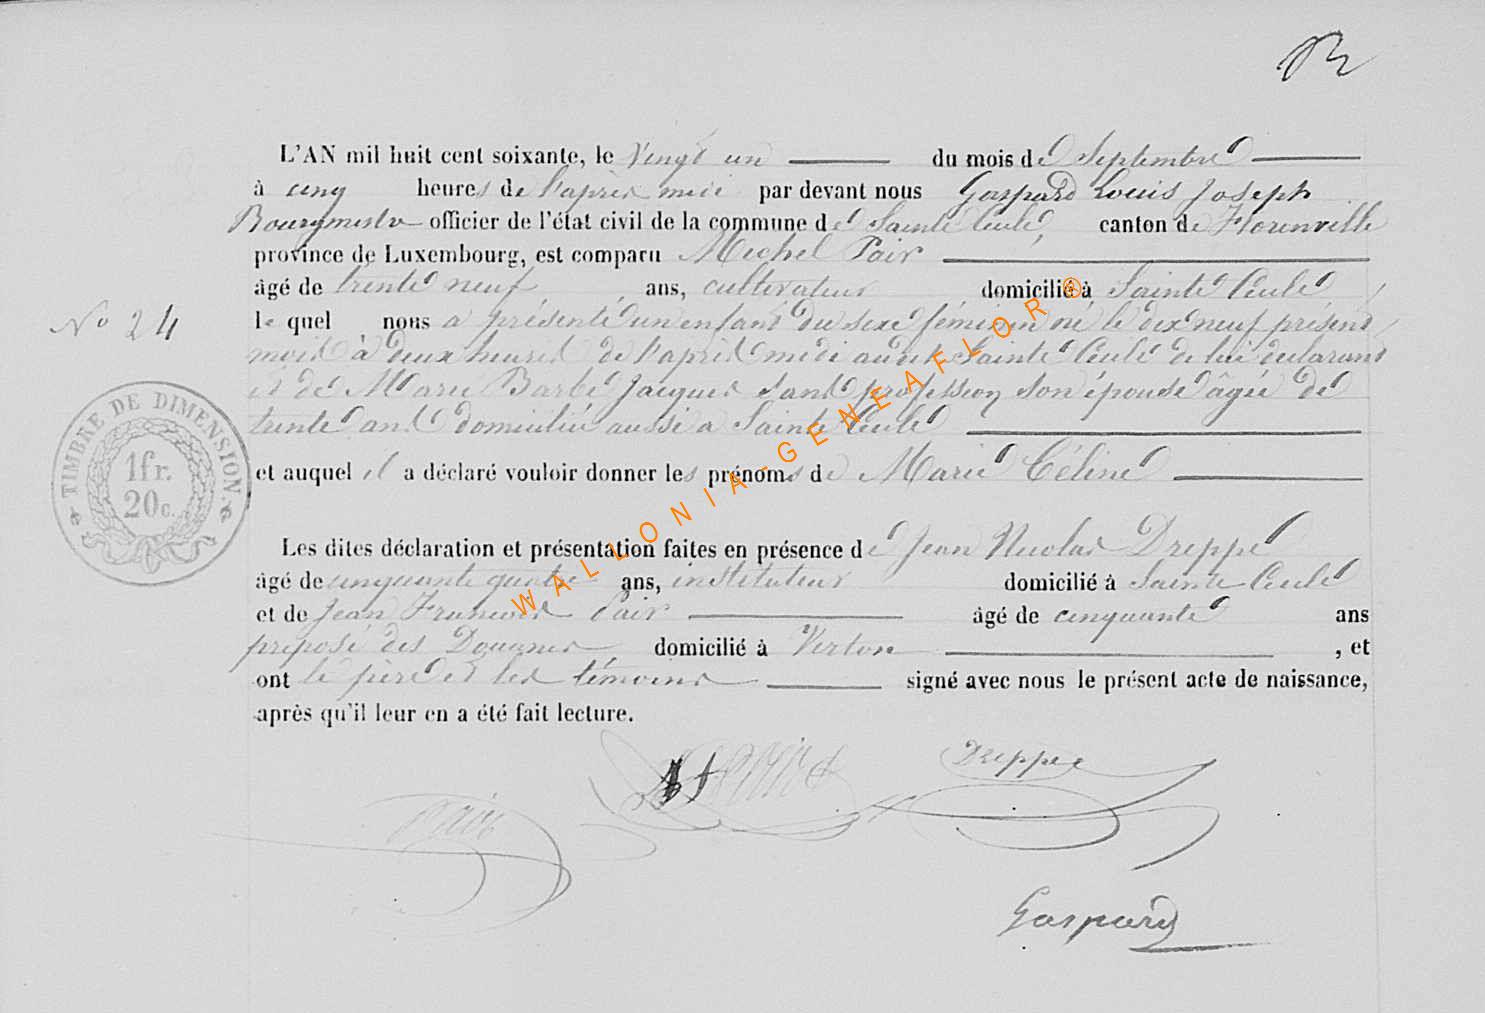 L'AN mil huit cent soixante, le Vingt un du mois de Septembre
à cinq heures de l'après midi par devant nous Gaspard Louis Joseph
Bourgmestre officier de l'état civil de la commune de Sainte Cécile, canton de Florenville
province de Luxembourg, est comparu Michel Pair
âgé de trente neuf ans, cultivateur domicilié à Sainte Cécile
le quel nous a présenté un enfant du sexe féminin né le dix neuf présent
mois à deux heures de l'après midi audit Sainte Cécile de lui déclarant
et de Marie Barbe Jacques sans profession son épouse âgée de
trente ans domiciliée aussi a Sainte Cécile
et auquel il a déclaré vouloir donner les prénoms de Marie Céline
Les dites déclaration et présentation faites en présence de Jean Nicolas Dreppe
âgé de cinquante quatre ans, instituteur domicilié à Sainte Cécile
et de Jean François Pair âgé de cinquante ans
préposé des Douanes domicilié à Virton , et
ont le père et les témoins signé avec nous le présent acte de naissance,
après qu'il leur en a été fait lecture.
No 24
TIMBRE DE DIMENSION
1fr.
20c.
WALLONIA-GENEAFLOR®
Dreppe
Pair
Gaspard